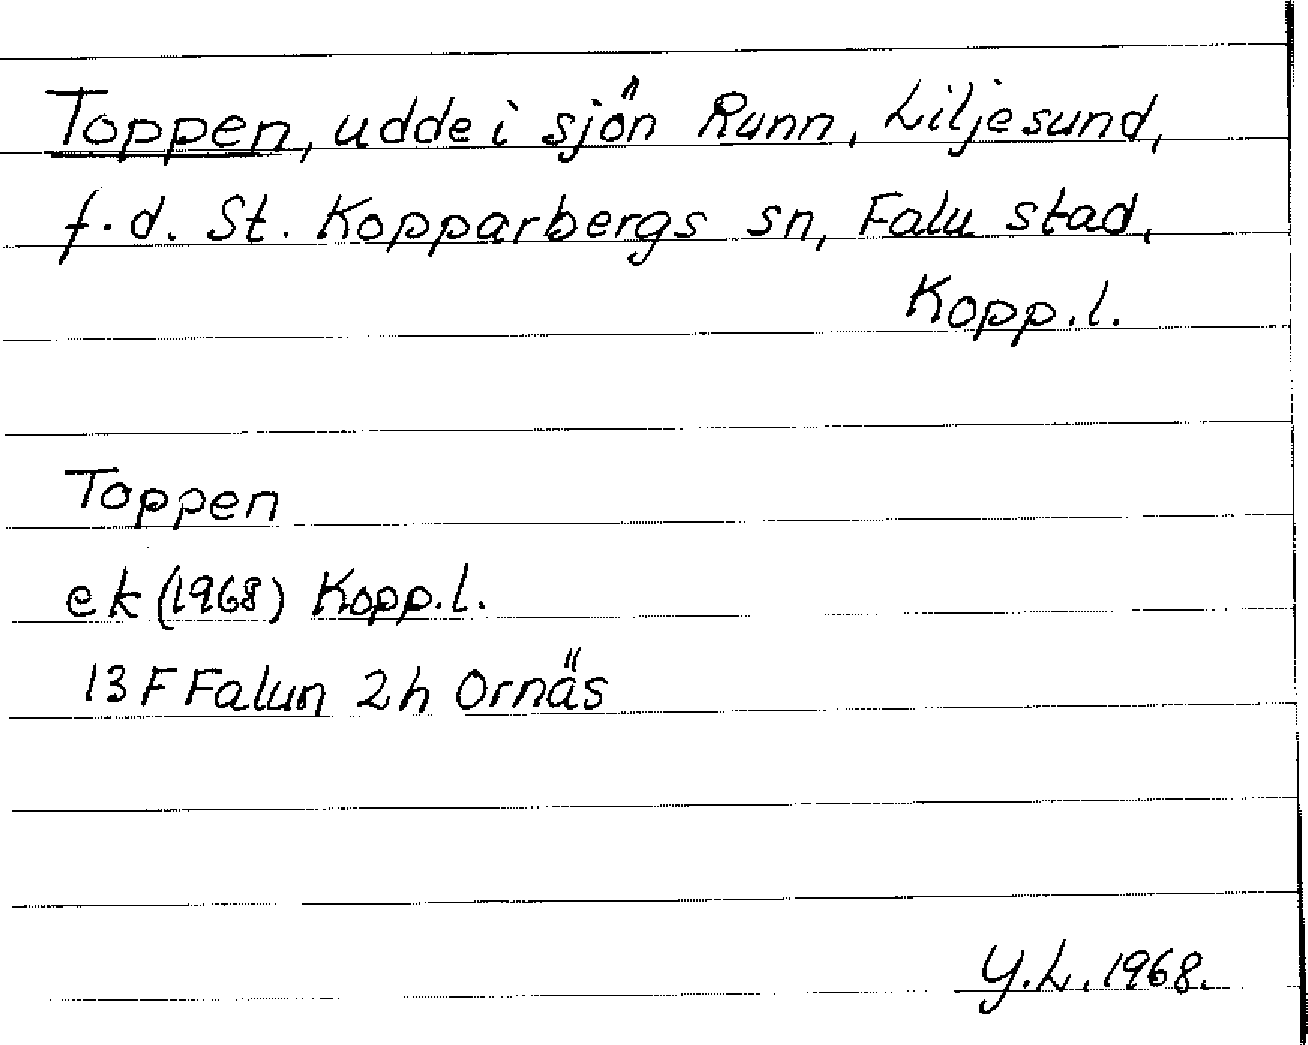 Toppen, udde i sjön Runn, Liljesund,
f.d. St. Kopparbergs sn, Falu stad,
Kopp.l.
Toppen
ek (1968) Kopp.l.
13 F Falun 2h Ornäs
Y.L. 1968.